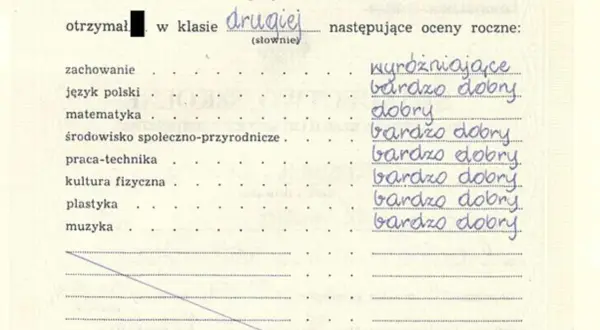 otrzymał, w klasie drugiej następujące oceny roczne:
(słownie)
zachowanie . . . . . . . . wyróżniające
język polski . . . . . . . . bardzo dobry
matematyka . . . . . . . . dobry
środowisko społeczno-przyrodnicze . . . . bardzo dobry
praca-technika . . . . . . . bardzo dobry
kultura fizyczna . . . . . . . bardzo dobry
plastyka . . . . . . . . bardzo dobry
muzyka . . . . . . . . bardzo dobry